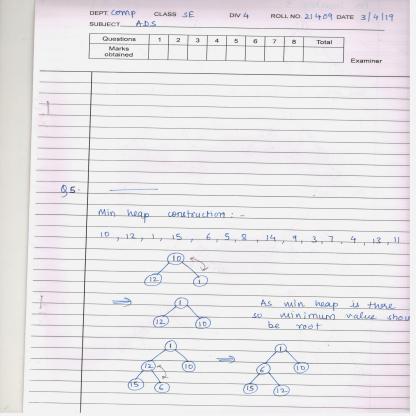 DEPT. Comp CLASS SE DIV 4 ROLL NO. 21409 DATE 3/4/19
SUBJECT ADS
Questions 1 2 3 4 5 6 7 8 Total
Marks obtained
Examiner
Q5.
Min heap construction :-
10, 12, 1, 15, 6, 5, 8, 14, 9, 3, 7, 4, 13, 11
10
12 1
⇒
1
12 10
As min heap is there
so minimum value shou
be root
1
12 10
15 6
⇒
1
6 10
15 12